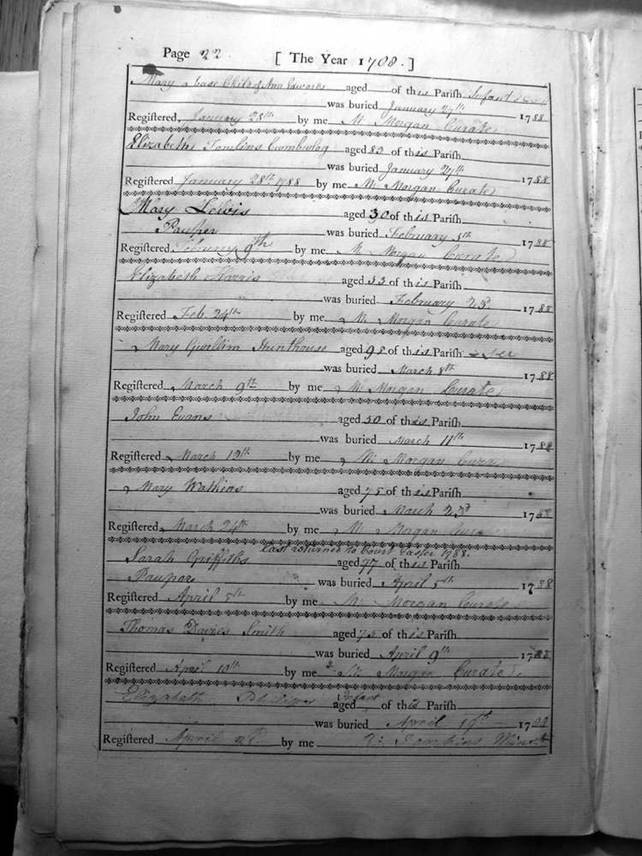 Page 22 [ The Year 1788. ]
Mary base Child of Ann Edwards aged of this Parish Infant
was buried January 27th 1788
Registered January 28th by me M Morgan Curate
Elizabeth Tomlins Cwmbwlog aged 83 of this Parish
was buried January 27th 1788
Registered January 28th 1788 by me M. Morgan Curate
Mary Lewis aged 30 of this Parish
Pauper was buried February 5th 1788
Registered February 9th by me M. Morgan Curate
Elizabeth Harris aged 33 of this Parish
was buried February 23d 1788
Registered Feb. 24th by me M. Morgan Curate
Mary Gwillim aged 98 of this Parish
was buried March 8th 1788
Registered March 9th by me M. Morgan Curate
John Evans aged 50 of this Parish
was buried March 11th 1788
Registered March 12th by me M. Morgan Cura
Mary Watkins aged 75 of this Parish
was buried March 23d 1788
Registered March 24th by me M. Morgan Curate
Last returned to Court Easter 1788.
Sarah Griffiths aged 77 of this Parish
Pauper was buried April 5th 1788
Registered April 5th by me M. Morgan Curate
Thomas Davies Smith aged 72 of this Parish
was buried April 9th 1788
Registered April 10th by me M. Morgan Curate
Elizabeth aged Infant of this Parish
was buried April 19th 1788
Registered April by me Tomkins